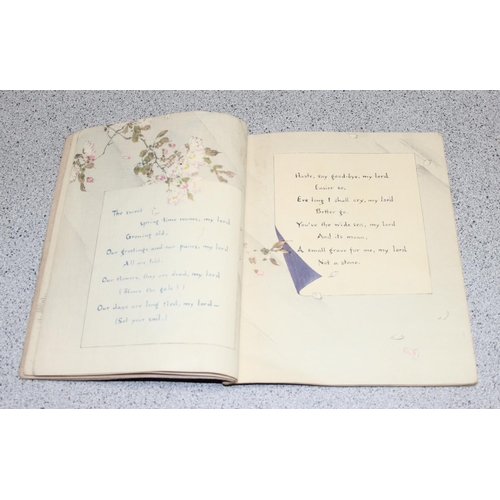 The sweet
spring time moves, my lord
Growing old,
Our greetings and our pains, my lord
All are told.
Our thrones, they are dead, my lord
(Blows the gale!)
Our days are long fled, my lord –
(Set your sail!)
Haste, say good-bye, my lord
Easier so,
Ere long I shall cry, my lord
Better go.
You're the wide sea, my lord
And its moan,
A small grave for me, my lord,
Not a stone.